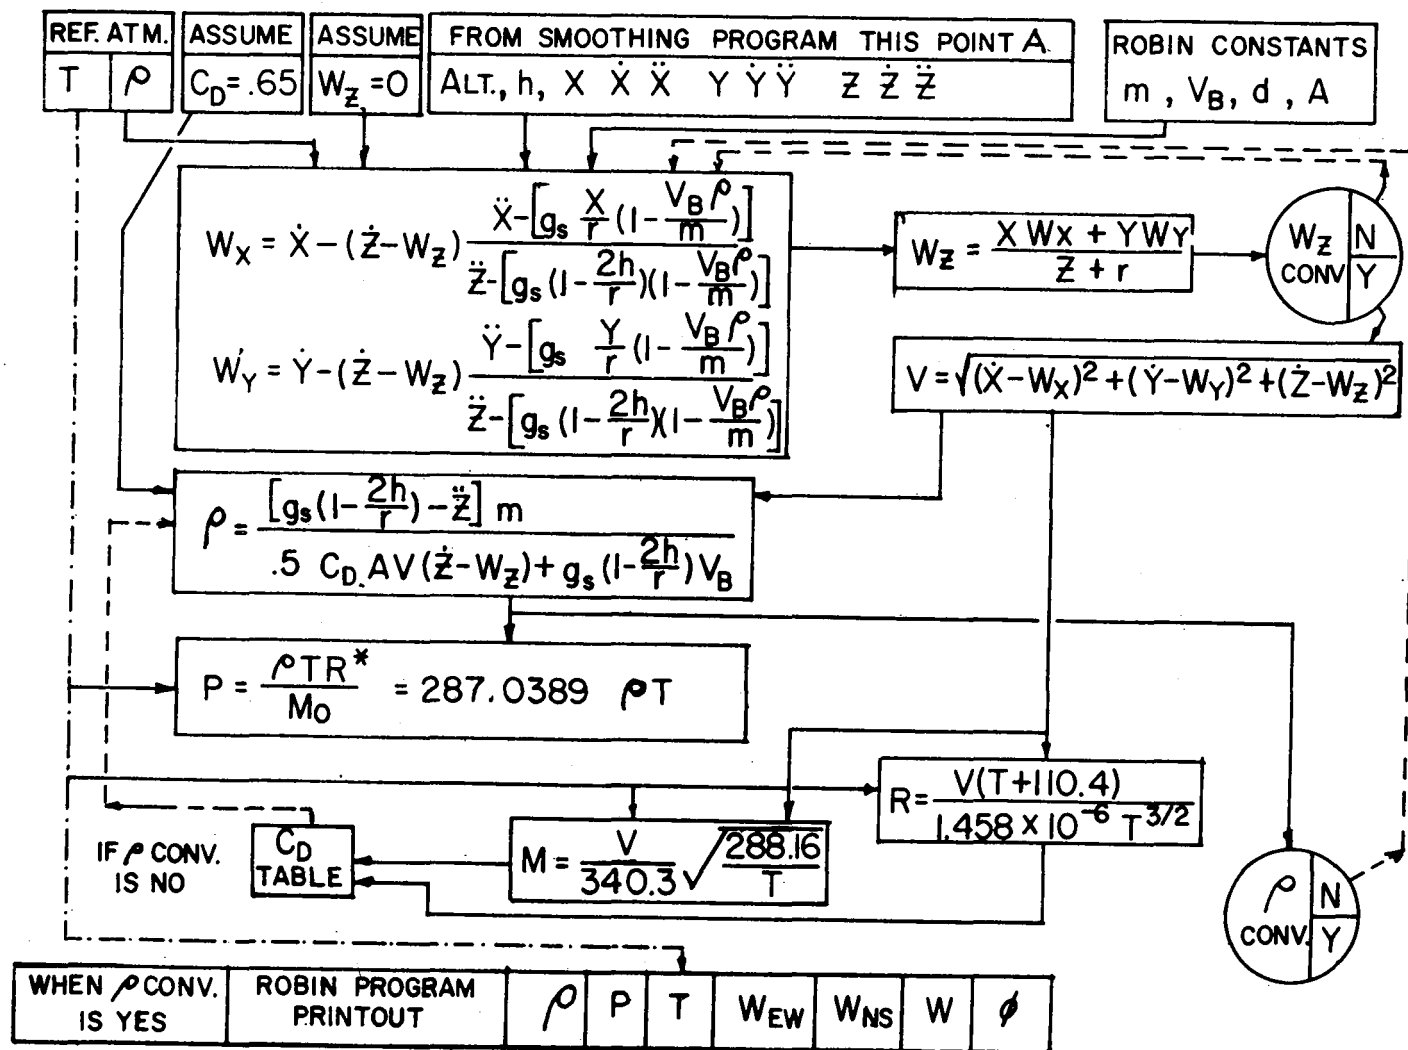 REF. ATM.
T ρ
ASSUME
C_D = .65
ASSUME
W_Z = 0
FROM SMOOTHING PROGRAM THIS POINT A.
ALT., h, X Ẋ Ẍ Y Ẏ Ÿ Z Ż Z̈
ROBIN CONSTANTS
m , V_B, d , A
W_X = Ẋ - (Ż - W_Z) (Ẍ - [g_s X/r (1 - V_B ρ/m)]) / (Z̈ - [g_s (1 - 2h/r)(1 - V_B ρ/m)])
Ẇ_Y = Ẏ - (Ż - W_Z) (Ÿ - [g_s Y/r (1 - V_B ρ/m)]) / (Z̈ - [g_s (1 - 2h/r)(1 - V_B ρ/m)])
W_Z = (X W_X + Y W_Y) / (Z + r)
W_Z N
CONV Y
V = √((Ẋ - W_X)² + (Ẏ - W_Y)² + (Ż - W_Z)²)
ρ = ([g_s (1 - 2h/r) - Z̈] m) / (.5 C_D. AV (Ż - W_Z) + g_s (1 - 2h/r) V_B)
P = ρTR*/M_O = 287.0389 ρT
R = V(T + 110.4) / (1.458 × 10⁻⁶ T^3/2)
M = V/340.3 √(288.16/T)
C_D
TABLE
IF ρ CONV.
IS NO
ρ N
CONV. Y
WHEN ρ CONV.
IS YES
ROBIN PROGRAM
PRINTOUT
ρ P T W_EW W_NS W ϕ